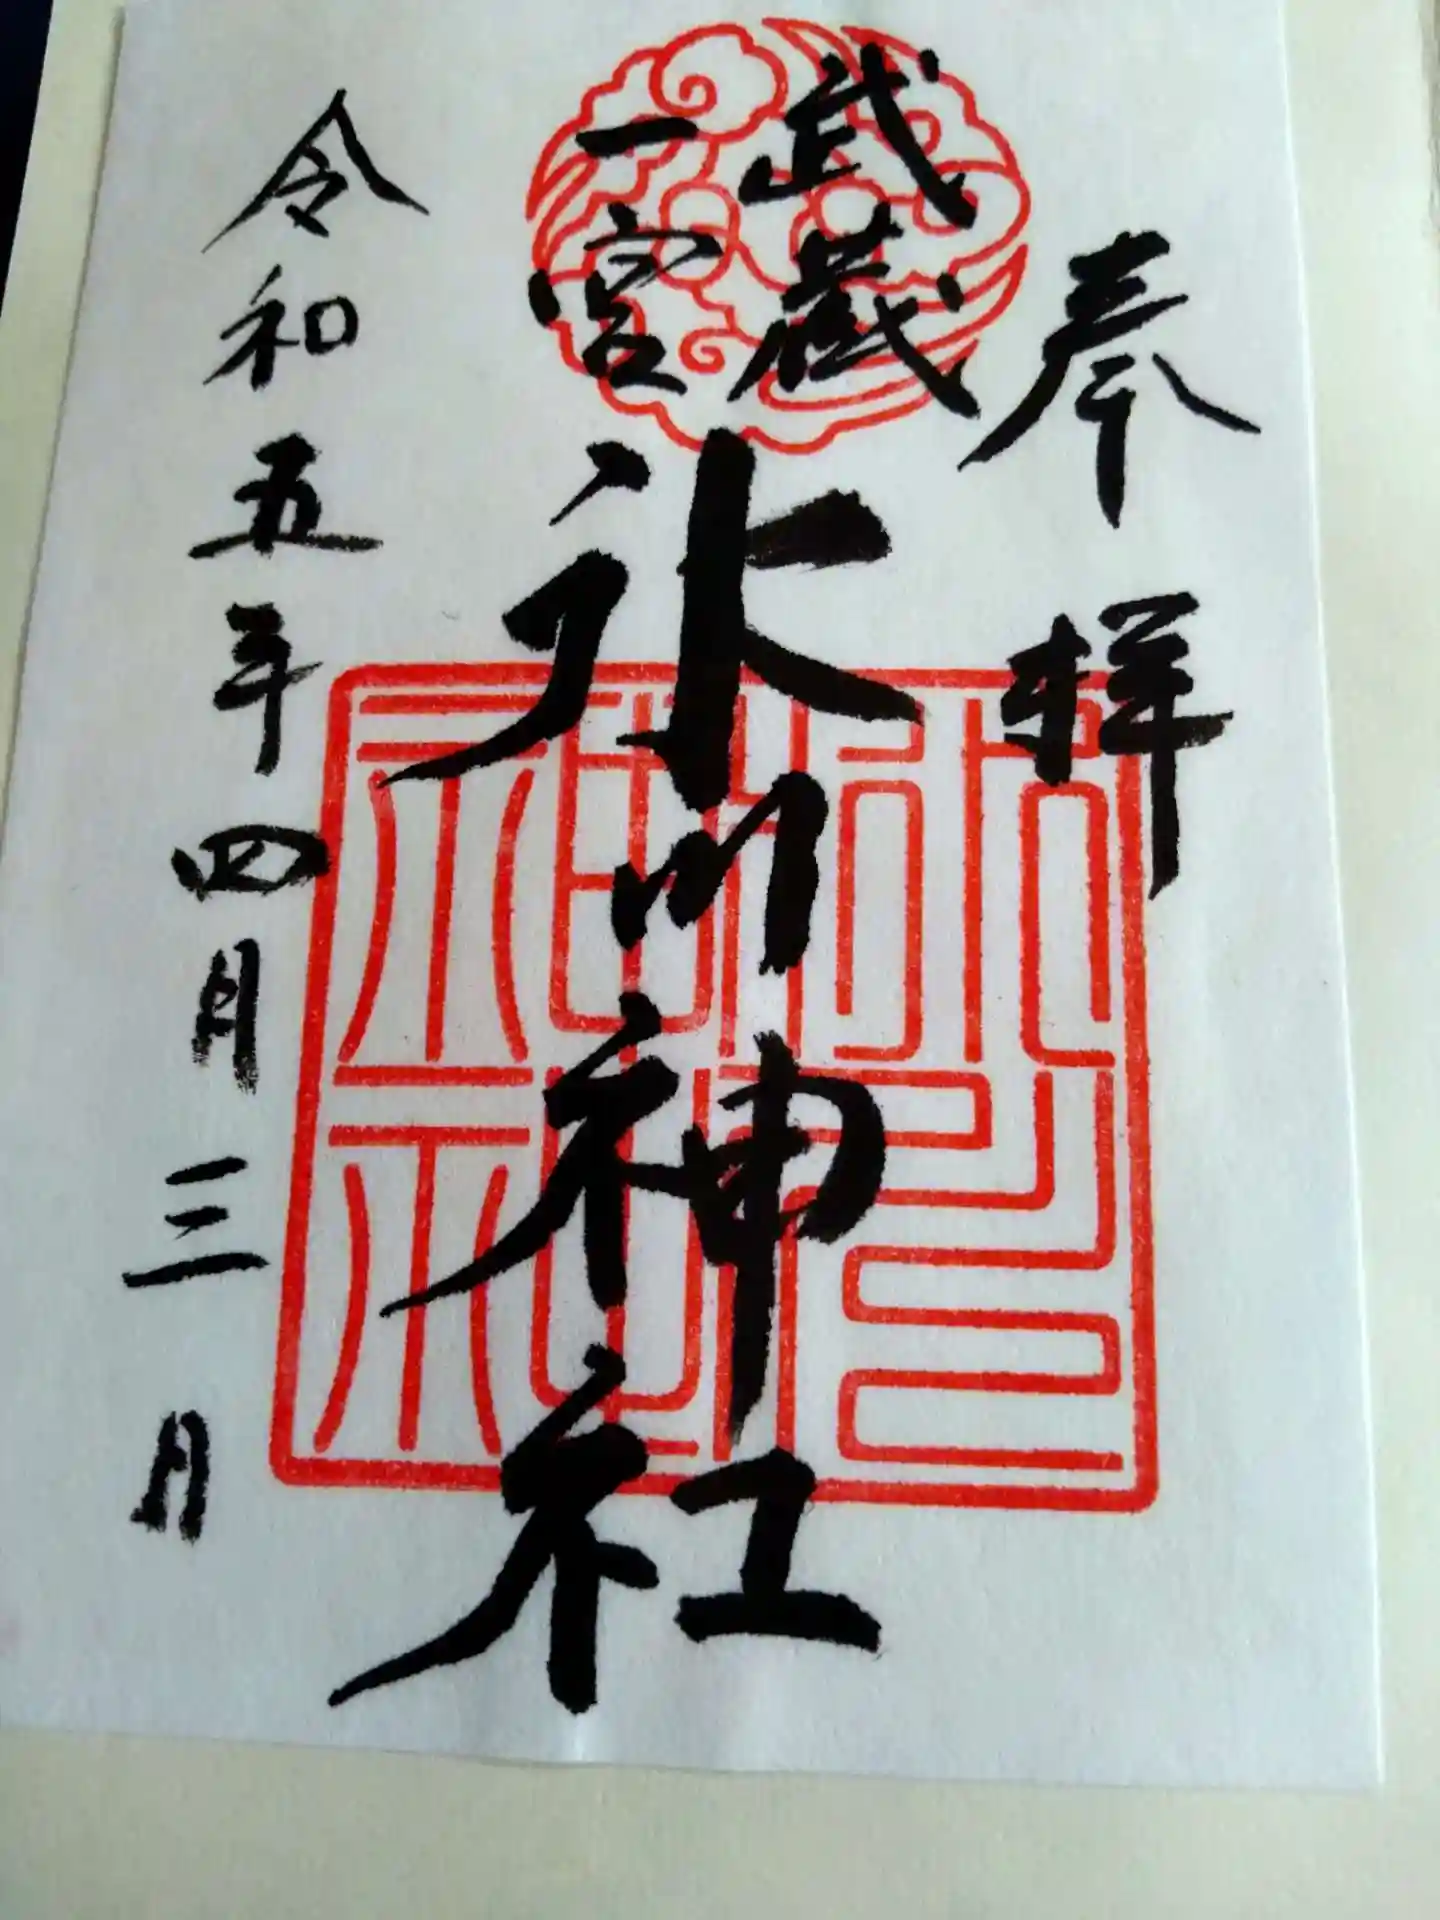 奉拝
武蔵
一宮
氷川神社
令和五年四月三日